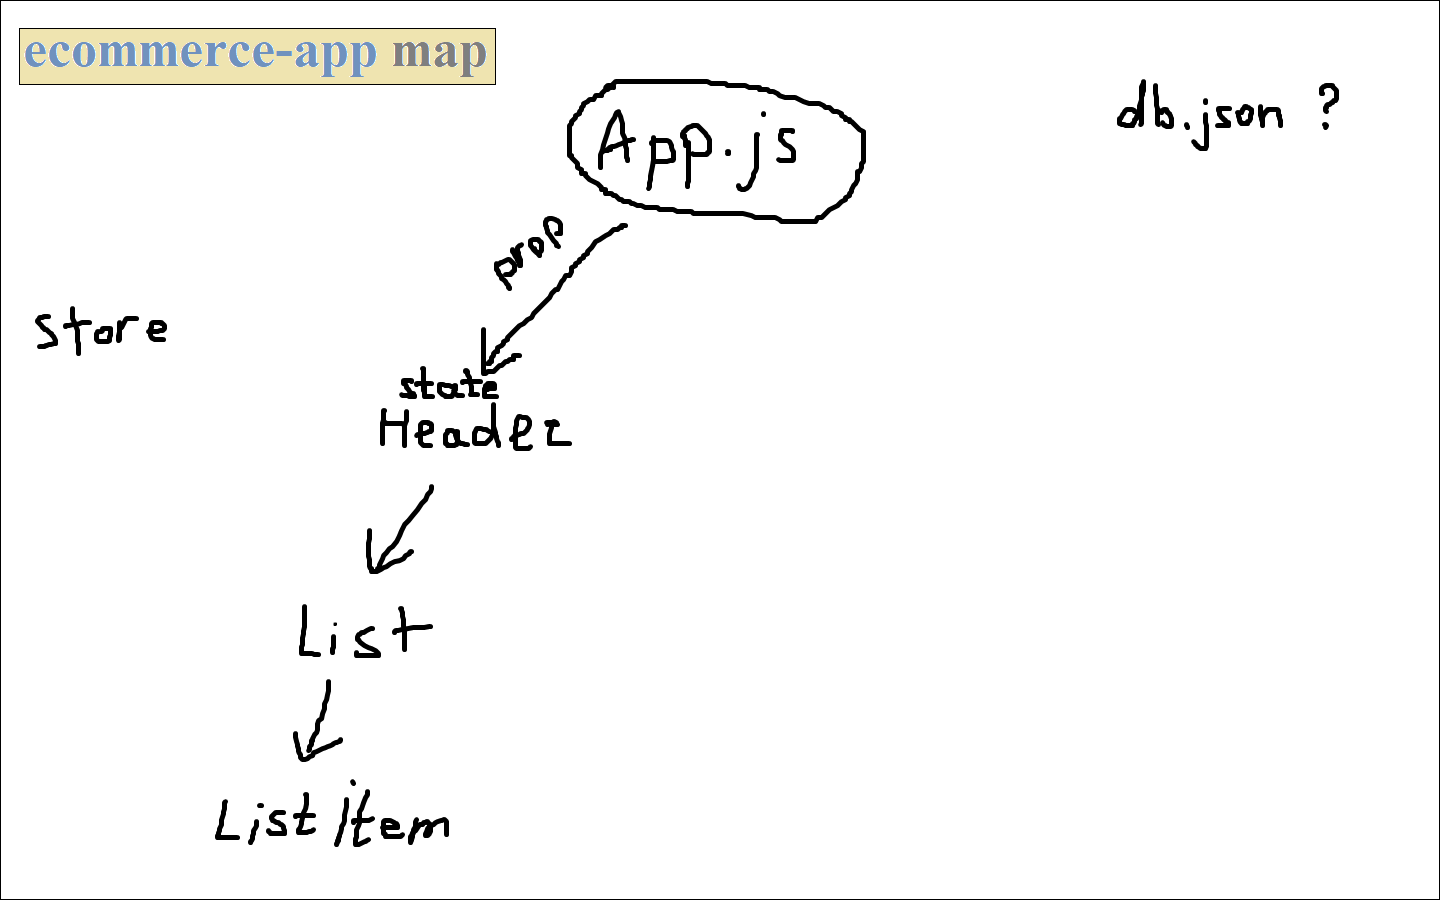 ecommerce-app map
App.js
db.json ?
prop
store
state
Header
List
List item